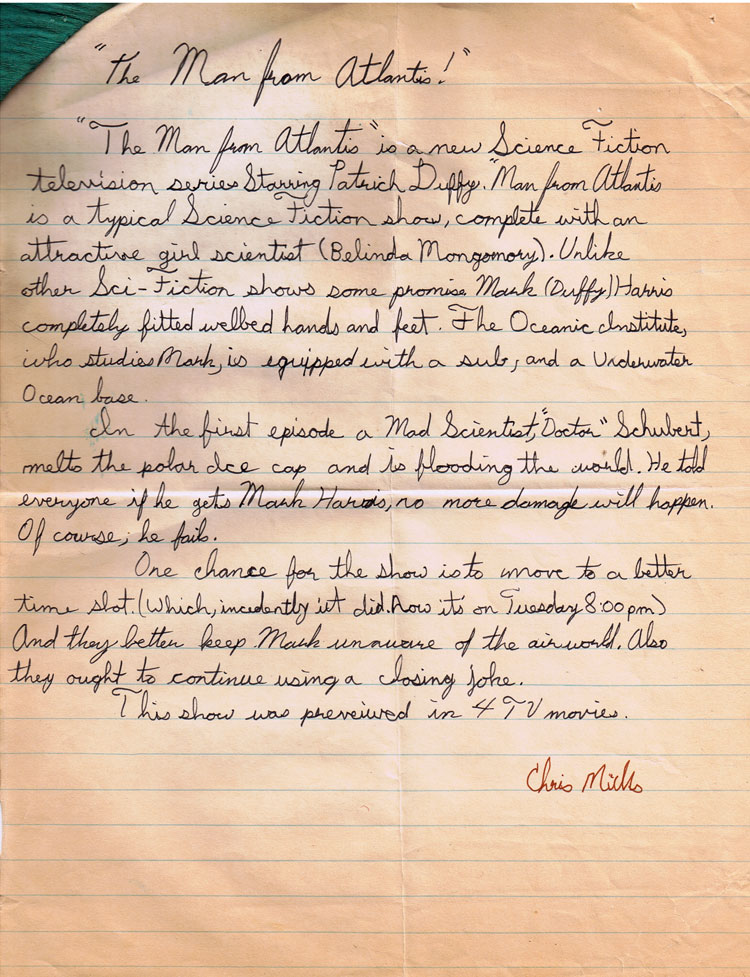 "The Man from Atlantis!"
"The Man from Atlantis" is a new Science Fiction
television series Starring Patrich Duffy. "Man from Atlantis
is a typical Science Fiction show, complete with an
attractive girl scientist (Belinda Mongomory). Unlike
other Sci-Fiction shows some promise. Mark (Duffy) Harris
completely fitted welbed hands and feet. The Oceanic Institute,
who studies Mark, is equipped with a sub, and a Underwater
Ocean base.
In the first episode a Mad Scientist, "Doctor" Schubert,
melts the polar Ice cap and is flooding the world. He told
everyone if he gets Mark Harris, no more damage will happen.
Of course, he fails.
One chance for the show is to move to a better
time slot. (Which, incedently it did. Now it's on Tuesday 8:00pm)
And they better keep Mark unaware of the air world. Also
they ought to continue using a closing joke.
This show was preveiwed in 4 TV movies.
Chris Mills